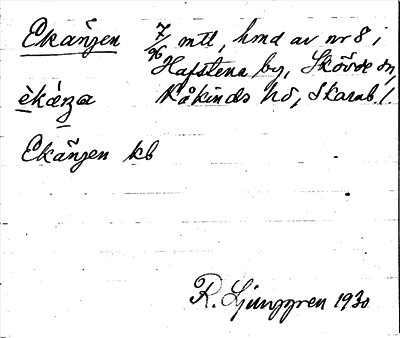 Ekängen 7/96 mtl, hmd av nr 8 i
Hafstena by, Skövde sn,
èkáŋa Kåkinds hd, Skarab. l.
Ekängen kb
R. Ljunggren 1930